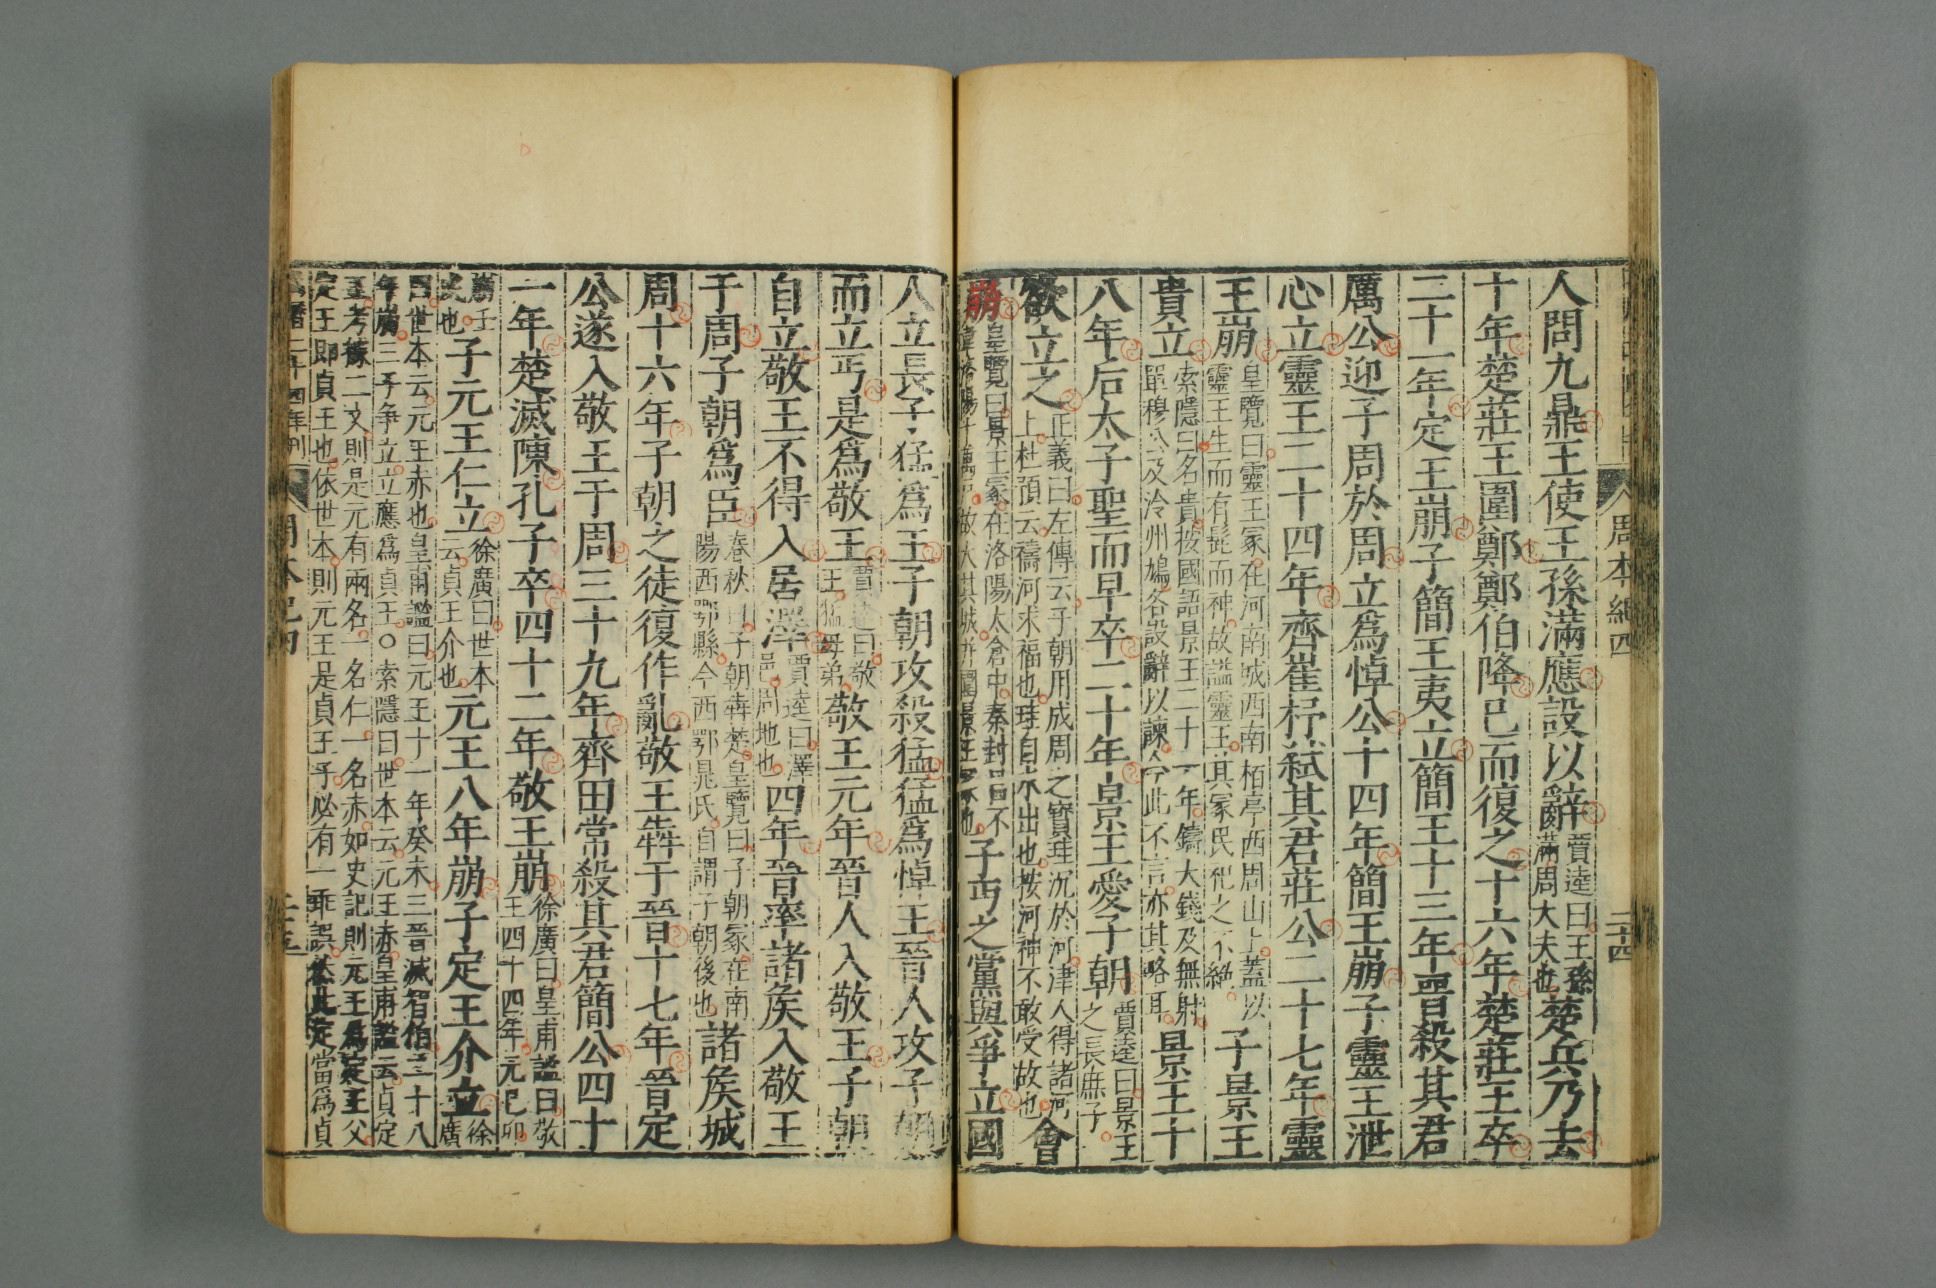 周本紀四
二十四
人問九鼎王使王孫滿應設以辭賈逵曰王孫滿周大夫也楚兵乃去
十年楚莊王圍鄭鄭伯降已而復之十六年楚莊王卒
二十一年定王崩子簡王夷立簡王十三年晉殺其君
厲公迎子周於周立爲悼公十四年簡王崩子靈王泄
心立靈王二十四年齊崔杼弑其君莊公二十七年靈
王崩皇覽曰靈王冢在河南城西南栢亭西周山上蓋以靈王生而有髭而神故謚靈王其冢民祀之不絕子景王
貴立索隱曰名貴按國語景王二十一年鑄大錢及無射單穆公及泠州鳩各設辭以諫今此不言亦其略耳景王十
八年后太子聖而早卒二十年景王愛子朝賈逵曰景王之長庶子
欲立之正義曰左傳云子朝用成周之寶珪沉於河津人得諸河上杜預云禱河求福也珪自水出也按河神不敢受故也會
崩皇覽曰景王冢在洛陽太倉中秦封呂不韋洛陽十萬戶故大其城并圍景王冢也子丐之黨與爭立國
人立長子猛爲王子朝攻殺猛猛爲悼王晉人攻子朝
而立丐是爲敬王賈逵曰敬王猛母弟敬王元年晉人入敬王子朝
自立敬王不得入居澤賈逵曰澤邑周地也四年晉率諸侯入敬王
于周子朝爲臣春秋曰子朝犇楚皇覽曰子朝冢在南陽西鄂縣今西鄂晁氏自謂子朝後也諸侯城
周十六年子朝之徒復作亂敬王犇于晉十七年晉定
公遂入敬王于周三十九年齊田常殺其君簡公四十
一年楚滅陳孔子卒四十二年敬王崩徐廣曰皇甫謐曰敬王四十四年元己卯
崩壬戌也子元王仁立徐廣曰世本云貞王介也元王八年崩子定王介立徐廣
曰世本云元王赤也皇甫謐曰元王十一年癸未三晉滅智伯二十八年崩三子爭立立應爲貞王○索隱曰世本云元王赤皇甫謐云貞定
王考據二文則是元有兩名一名仁一名赤如史記則元王爲定王父定王即貞王也依世本則元王是貞王子必有一乖誤然此定當爲貞
萬曆二十四年刊
周本紀四
二十五